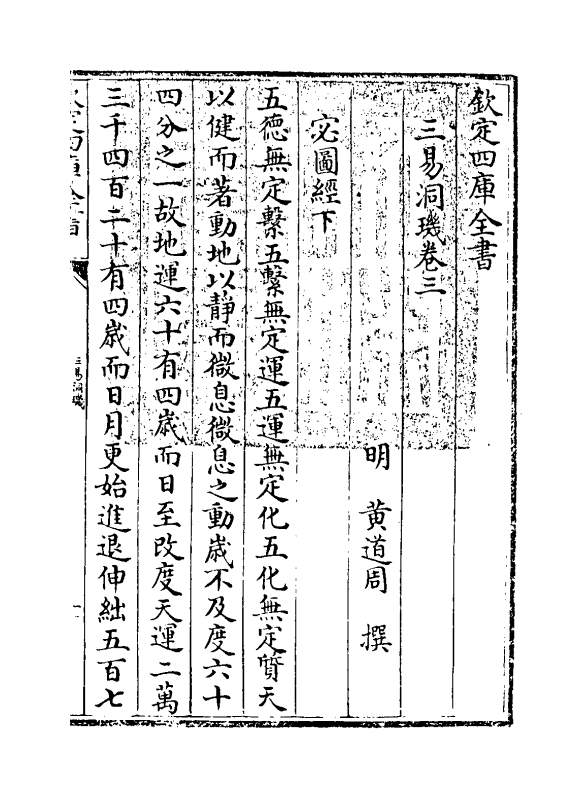 欽定四庫全書
三易洞璣卷三
明 黃道周 撰
宓圖經下
五德無定繫五繫無定運五運無定化五化無定質天
以健而著動地以靜而微息微息之動嵗不及度六十
四分之一故地運六十有四嵗而日至改度天運二萬
三千四百二十有四嵗而日月更始進退伸絀五百七
三易洞璣
一